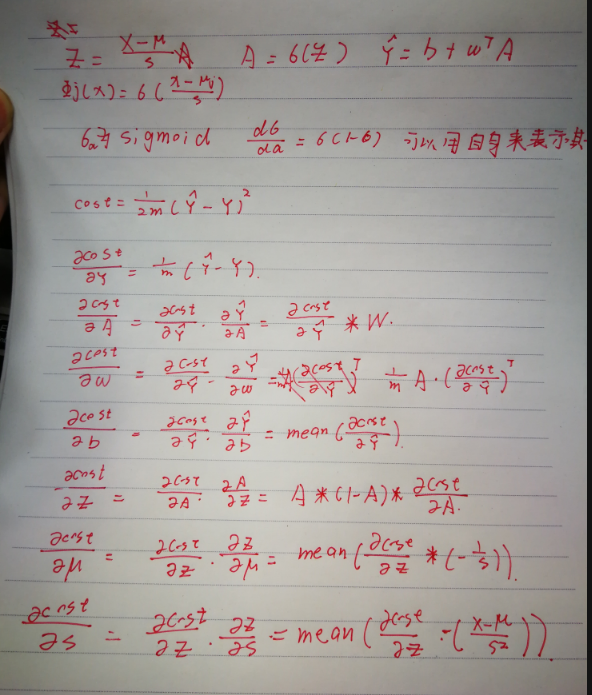 Z = (x-μ)/s A = 6(Z) Ŷ = b + wᵀA
Φj(x) = 6((x-μj)/s)
6a为sigmoid d6/da = 6(1-6) 可以用自身来表示其
cost = 1/2m (Ŷ - Y)²
∂cost/∂Y = 1/m (Ŷ - Y).
∂cost/∂A = ∂cost/∂Ŷ · ∂Ŷ/∂A = ∂cost/∂Ŷ * W.
∂cost/∂w = ∂cost/∂Ŷ · ∂Ŷ/∂w = 1/m A · (∂cost/∂Ŷ)ᵀ
∂cost/∂b = ∂cost/∂Ŷ · ∂Ŷ/∂b = mean(∂cost/∂Ŷ)
∂cost/∂Z = ∂cost/∂A · ∂A/∂Z = A * (1-A) * ∂cost/∂A.
∂cost/∂μ = ∂cost/∂Z · ∂Z/∂μ = mean(∂cost/∂Z * (-1/s)).
∂cost/∂s = ∂cost/∂Z · ∂Z/∂s = mean(∂cost/∂Z · -((x-μ)/s²)).